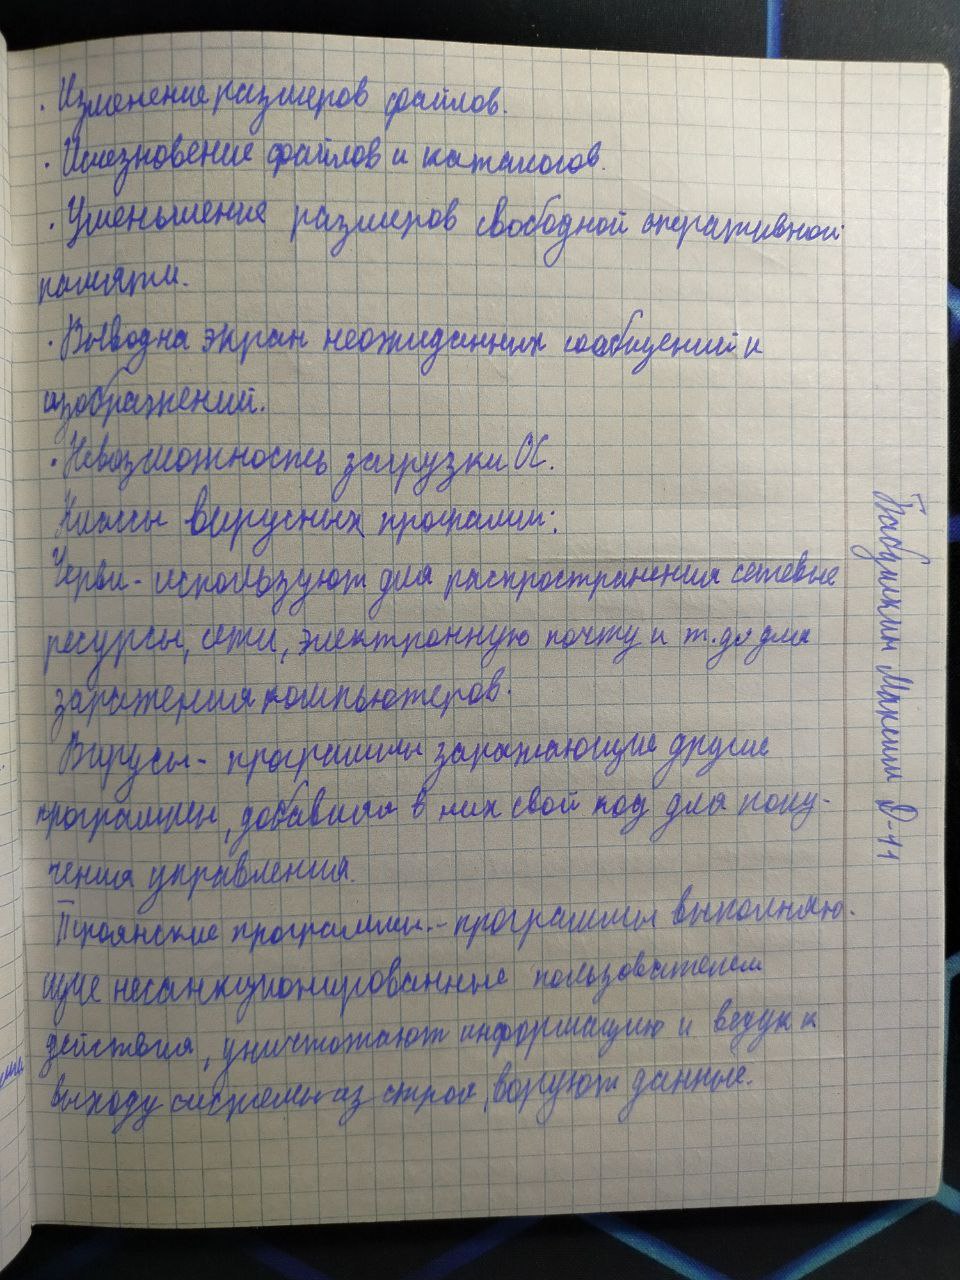 · Изменение размеров файлов.
· Исчезновение файлов и каталогов.
· Уменьшение размеров свободной оперативной
памяти.
· Вывод на экран неожиданных сообщений и
изображений.
· Невозможность загрузки ОС.
Классы вирусных программ:
Черви - используют для распространения сетевые
ресурсы, сети, электронную почту и т.д. для
заражения компьютеров.
Вирусы - программы заражающие другие
программы, добавляя в них свой код для полу-
чения управления.
Троянские программы - программы выполняю-
щие несанкционированные пользователем
действия, уничтожают информацию и ведущ к
выходу системы из строя, воруют данные.
Максим Д-11